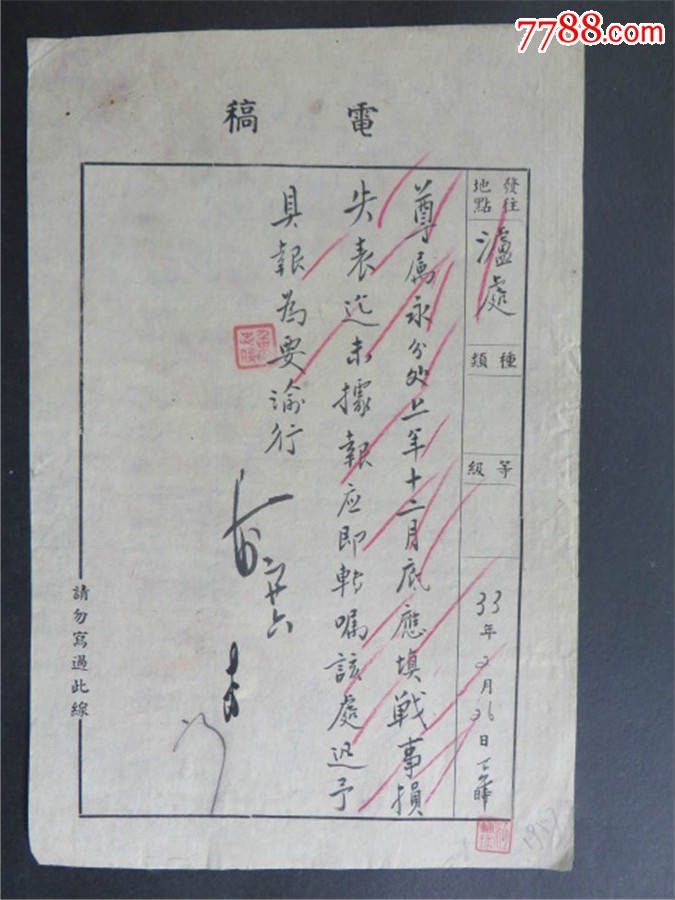 7788.com
中国收藏热线
電稿
發往地點
瀘處
種類
等級
33年2月26日
尊属永分处上年十二月底應填戰事損
失表迄未據報应即轉嘱該處迅予
具報為要渝行
二廿六
請勿寫過此線